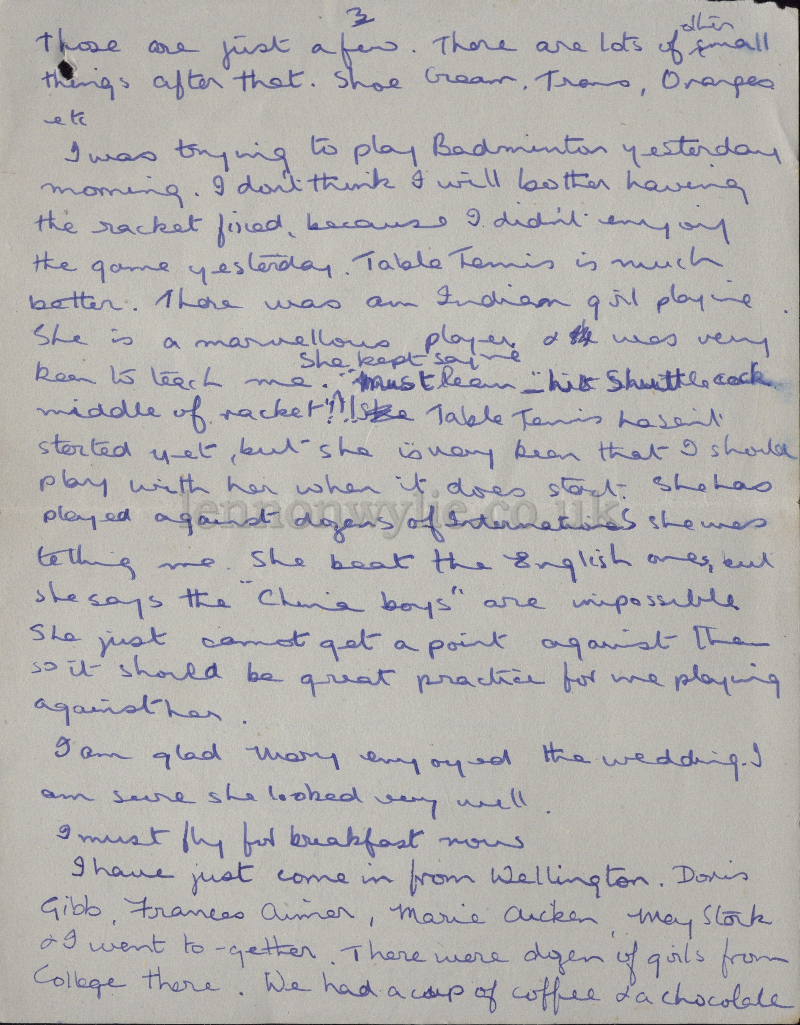 3
Those are just a few. There are lots of other small
things after that. Shoe Cream, Trams, Oranges
etc
I was trying to play Badminton yesterday
morning. I don't think I will bother having
the racket fixed, because I didn't enjoy
the game yesterday. Table Tennis is much
better. There was an Indian girl playing.
She is a marvellous player & was very
keen to teach me. She kept saying
"must learn - hit Shuttlecock
middle of racket"!!! Table Tennis hasent
started yet, but she is very keen that I should
play with her when it does start. She has
played against dozens of Internationals she was
telling me. She beat the English ones, but
she says the "China boys" are impossible
She just cannot get a point against them
so it should be great practice for me playing
against her.
I am glad Mary enjoyed the wedding. I
am sure she looked very well.
I must fly for breakfast now
I have just come in from Wellington. Doris
Gibb, Frances Aimer, Marie Aicken, May Stork
& I went to-gether. There were dozen of girls from
College there. We had a cup of coffee & a chocolate
lennonwylie.co.uk